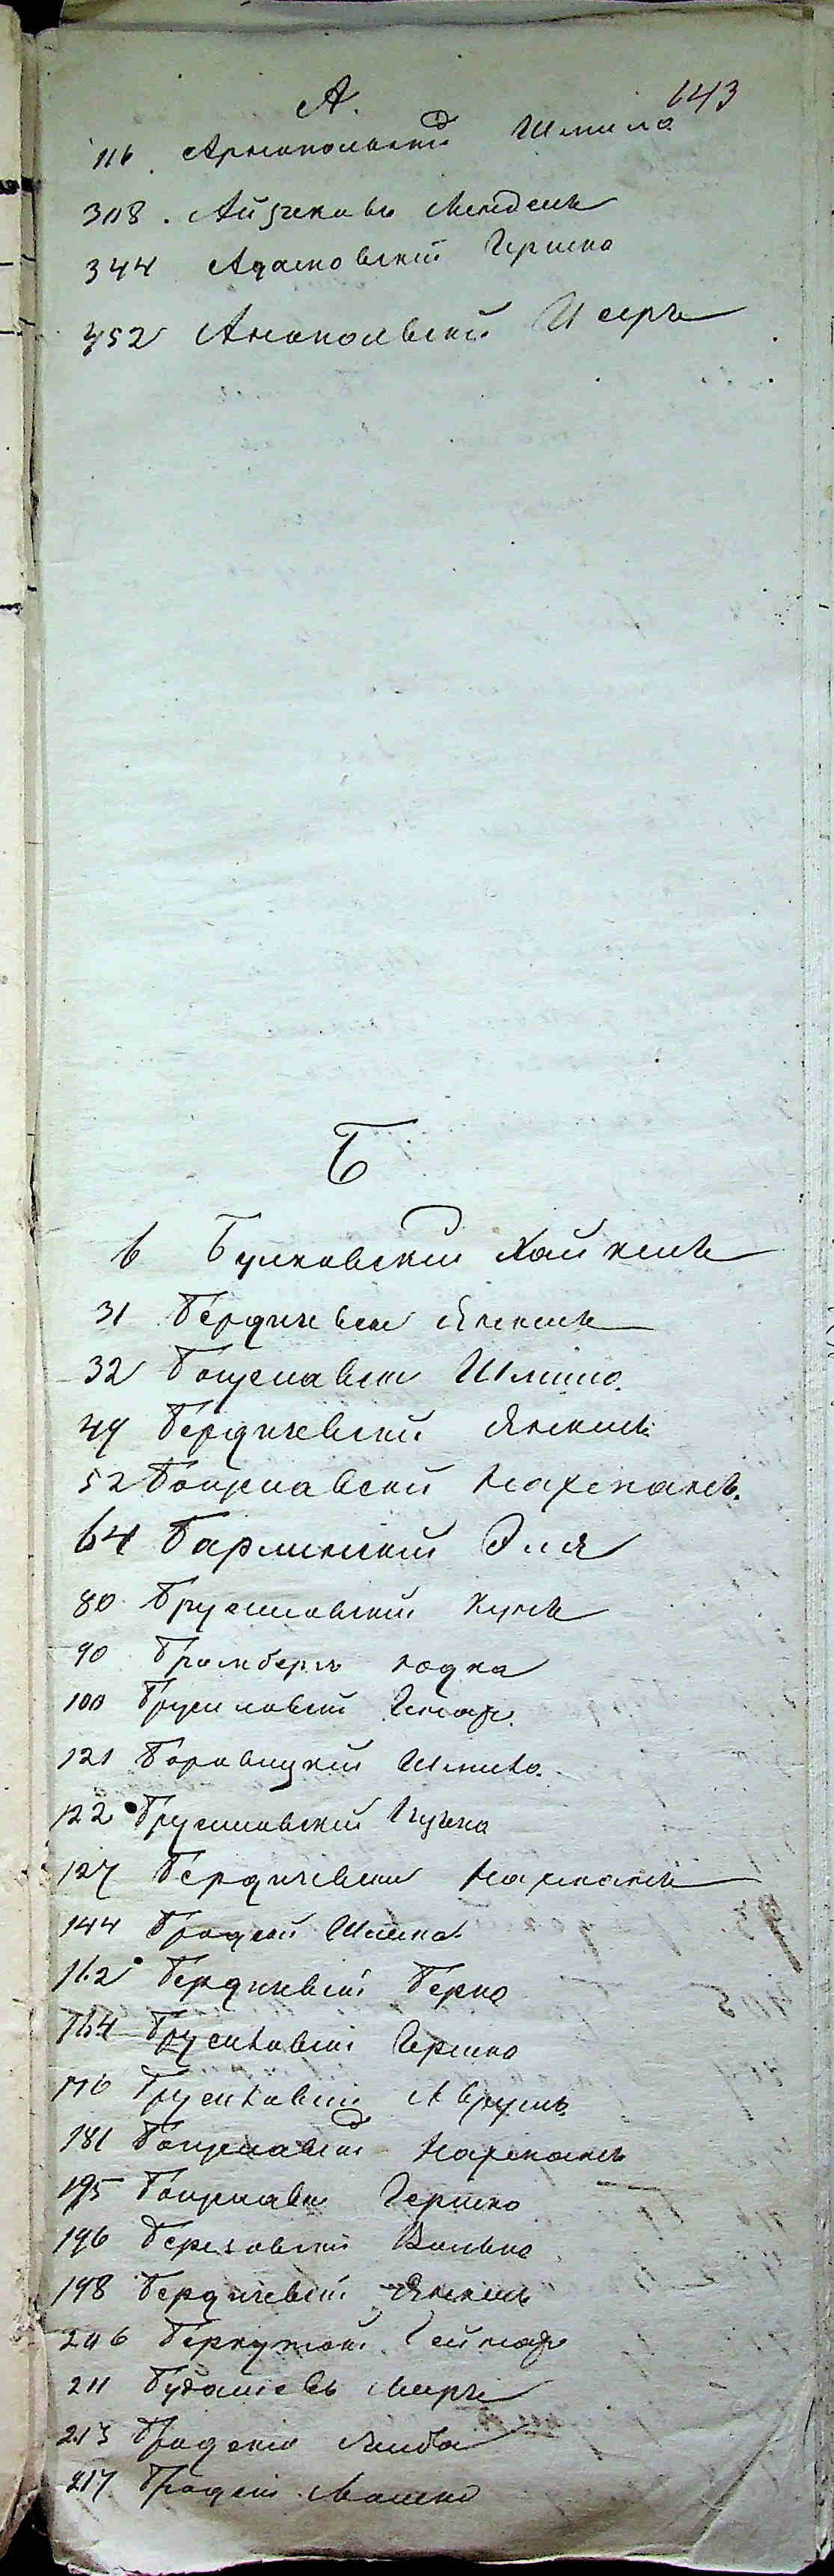 143
А.
116. Арнопольский Шмило
308. Айзиковъ Мендель
344 Адамовский Гершко
452 Анапольский Исеръ
Б
6 Булковский Хайкель
31 Бердичевск Янкель
32 Богуславск Шмило.
49 Бердичевский Янкель
52 Богуславский Нахманъ.
64 Барлинский Эля
80 Брусиловский Кунъ
90 Бромбергъ Юдка
100 Брусиловский
121 Боровицкий Шмило.
122 Брусиловский Ицько
127 Бердичевски Нахманъ
144 Бродский Шлиома
162 Бердичевский Берко
164 Брусиловский Гершко
176 Брусиловский Аврумъ
181 Богуславский Нахманъ
195 Богуславск Гершко
196 Березовский Волько
198 Бердичевский Янкель
206
211 Меиръ
213 Бродский Лейба
217 Бродский Мошко